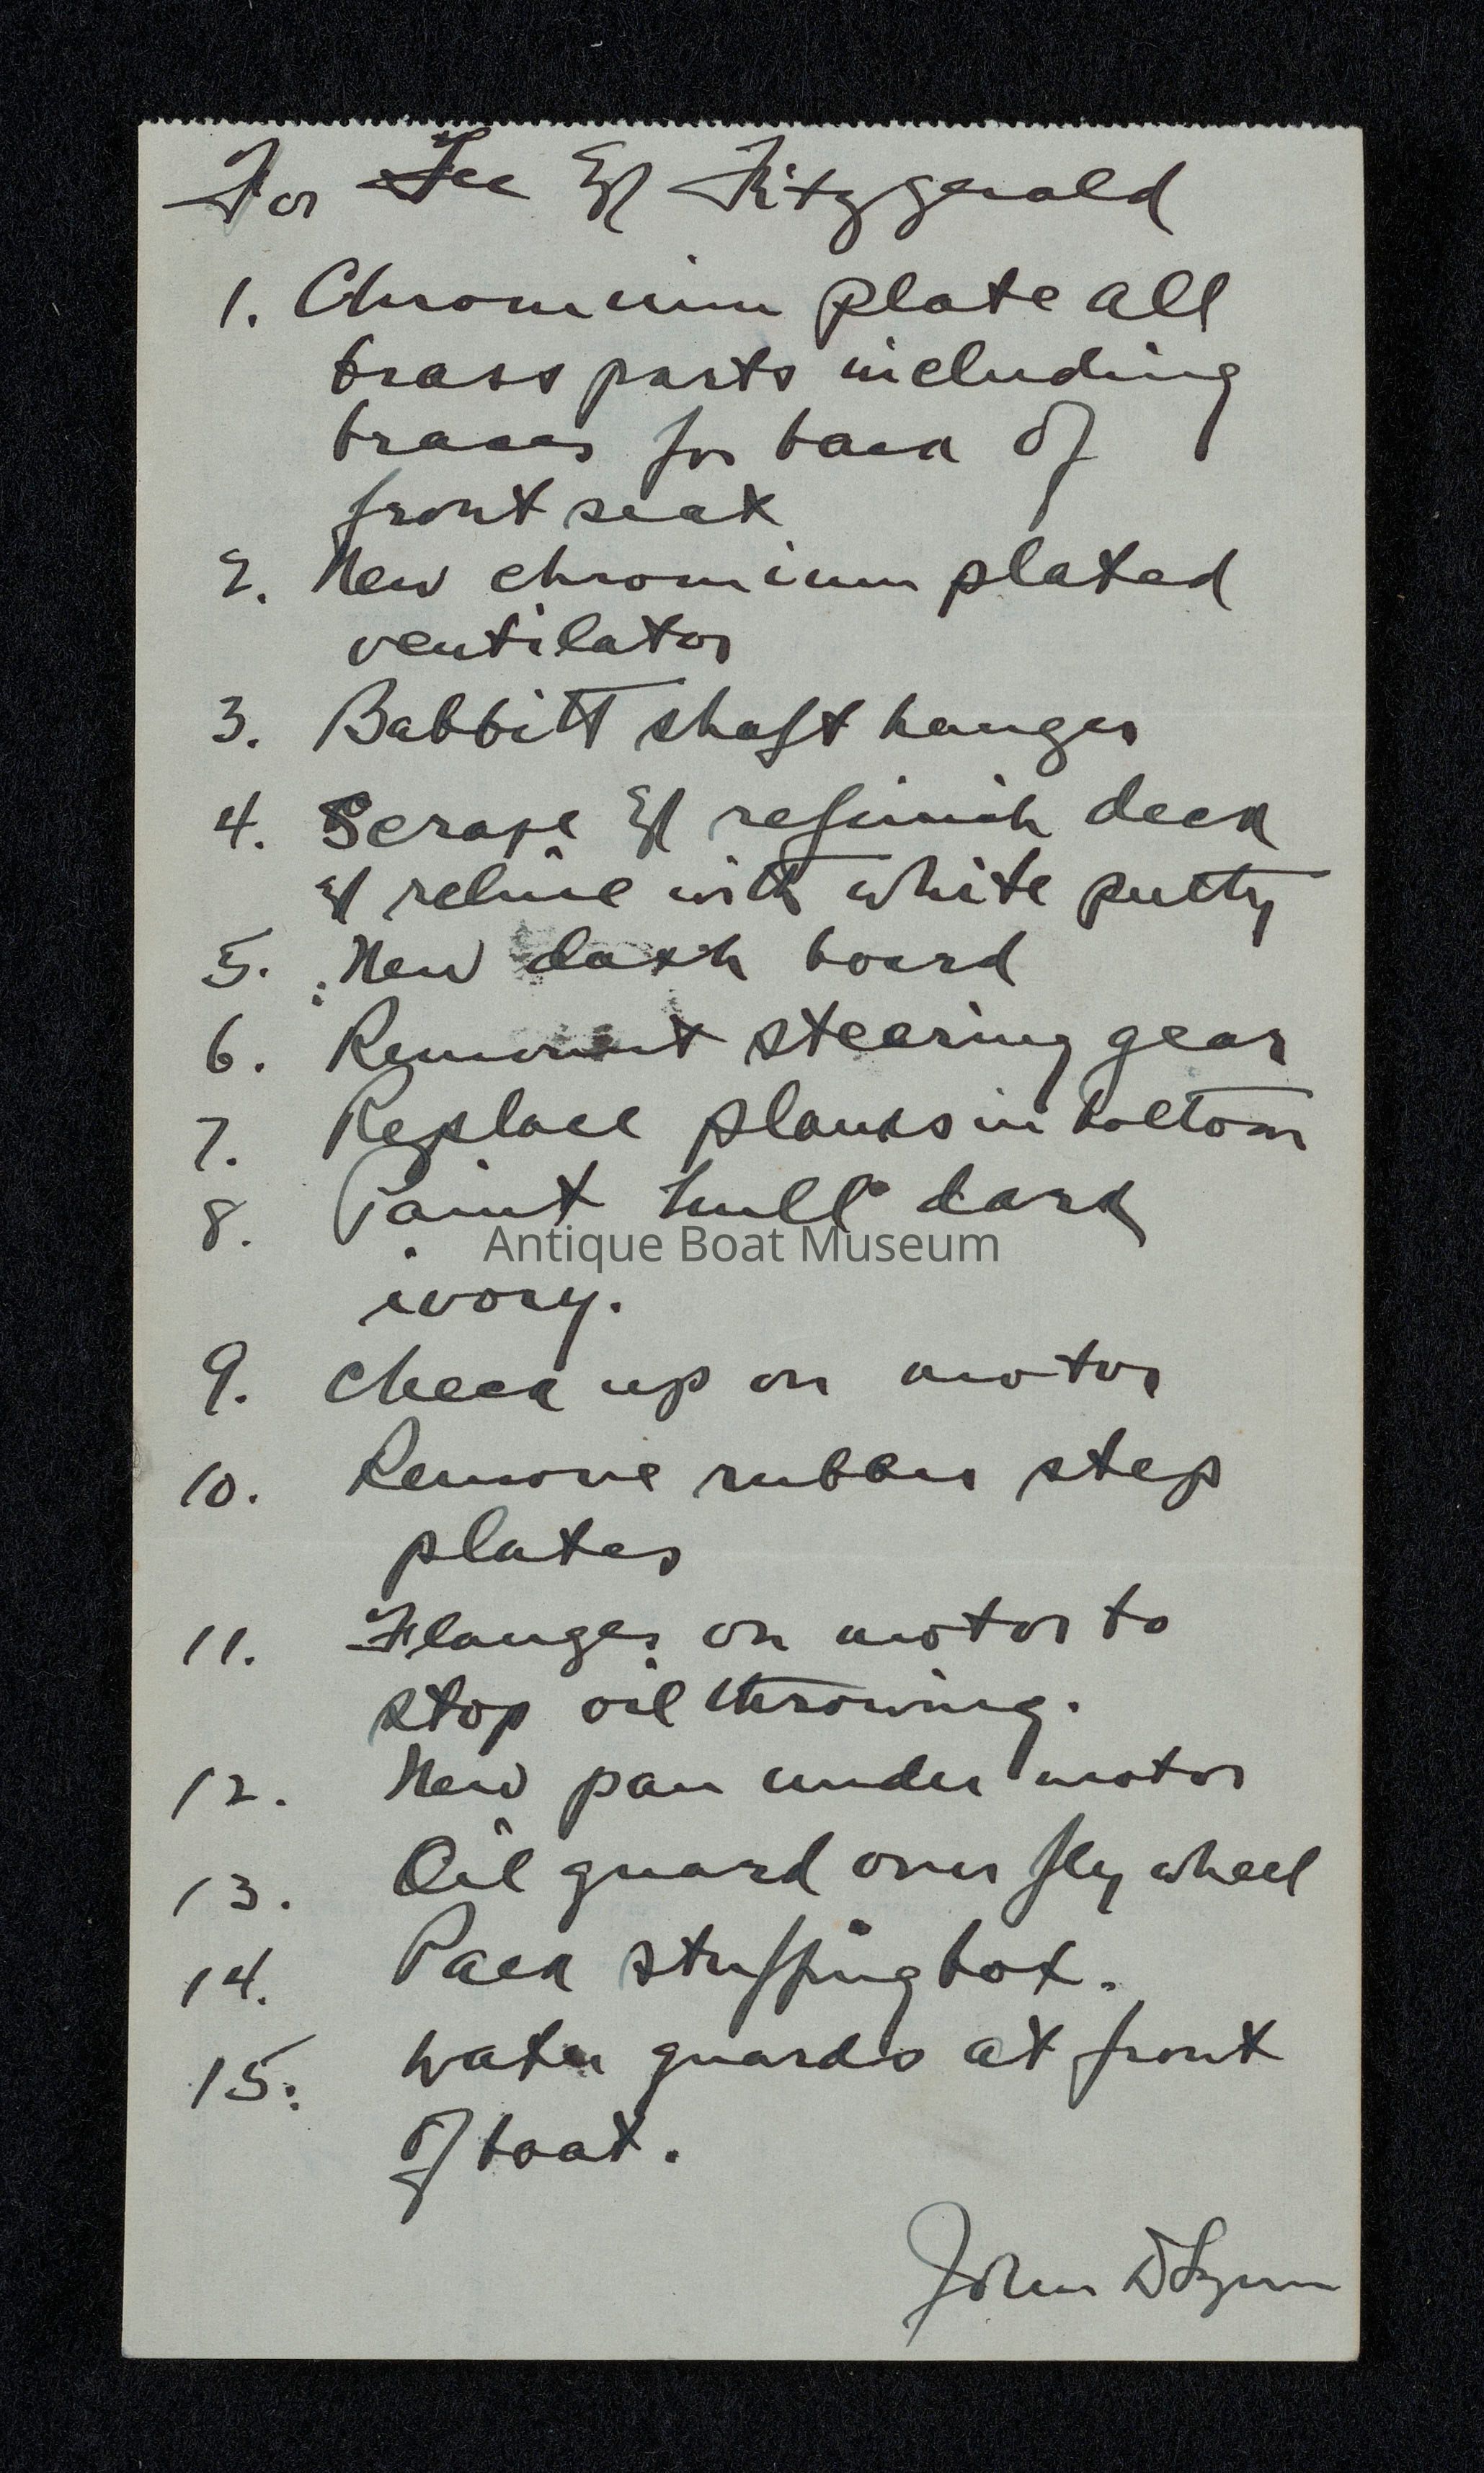 For Fee & Fitzgerald
1. Chromium plate all
brass parts including
braces for back of
front seat
2. New chromium plated
ventilator
3. Babbitt shaft hanger
4. Scrape & refinish deck
& reline with white putty
5. New dash board
6. Remount steering gear
7. Replace planks in bottom
8. Paint hull dark
Antique Boat Museum
ivory.
9. Check up on motor
10. Remove rubber step
plates
11. Flanges on motor to
stop oil throwing.
12. New pan under motor
13. Oil guard over fly wheel
14. Pack stuffing box.
15. Water guards at front
of boat.
John D Lynn